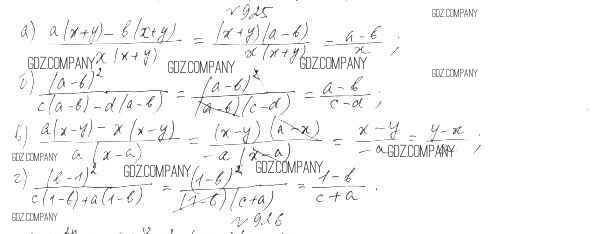 №925
GDZ.COMPANY
а) a(x+y)-b(x+y) / x(x+y) = (x+y)(a-b) / x(x+y) = a-b / x ;
GDZ.COMPANY GDZ.COMPANY GDZ.COMPANY
GDZ.COMPANY
б) (a-b)² / c(a-b)-d(a-b) = (a-b)² / (a-b)(c-d) = a-b / c-d ;
в) a(x-y)-x(x-y) / a(x-a) = (x-y)(a-x) / -a(x-a) = x-y / -a = y-x / a ;
GDZ.COMPANY GDZ.COMPANY GDZ.COMPANY GDZ.COMPANY
г) (b-1)² / c(1-b)+a(1-b) = (1-b)² / (1-b)(c+a) = 1-b / c+a .
GDZ.COMPANY
№926